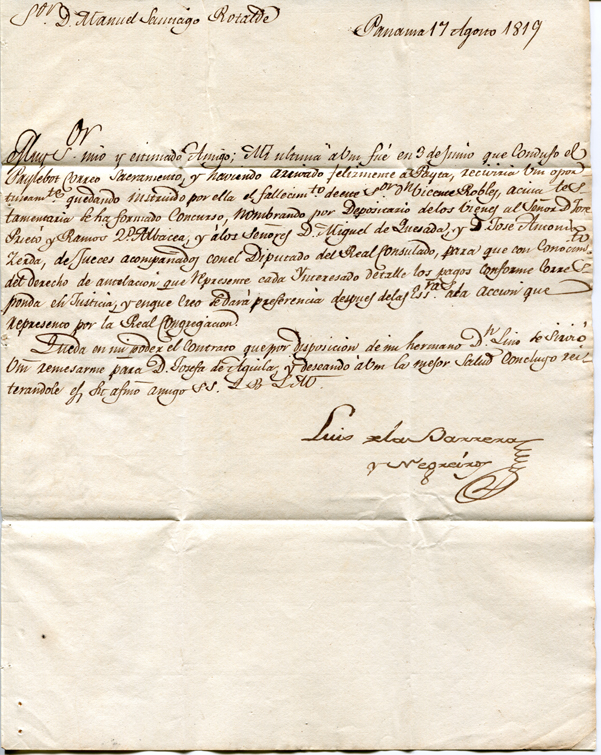 Sor. D. Manuel Santiago Rotalde
Panama 17 Agosto 1819
Muy Sor. mio y estimado Amigo; Mi ultima á Vm fué en 3 de Junio que Condujo el
Paylebot Correo Sacramento, y haviendo arrivado felizmente á Payta, reciviria Vm opor
tunamte. quedando instruido por ella el fallecimto de ese Sor. Dn Vicente Robles, á cuia tes
tamentaria se ha formado Concurso, nombrando por Depositario de los vienes al Señor D. Jose
Preco y Ramos 2º. Albacea, y á los Señores D. Miguel de Quesada, y D. Jose Antonio
Zerda, de Jueces acompañados con el Diputado del Real Consulado, para que con Conocimto
del Derecho de antelacion que represente cada Ynteresado detalle los pagos conforme Corres
ponda en Justicia, y en que creo se dará preferencia despues de las ala accion que
represento por la Real Congregacion.
Queda en mi poder el Contrato que por disposicion de mi hermano Dn. Luis se sirvió
Vm remesarme para D. Josefa de Aguila, y deseando á Vm la mejor Salud Concluyo rei
terandole es su afmo amigo SS. Q B S M
Luis de la Barrera
y Negreiros